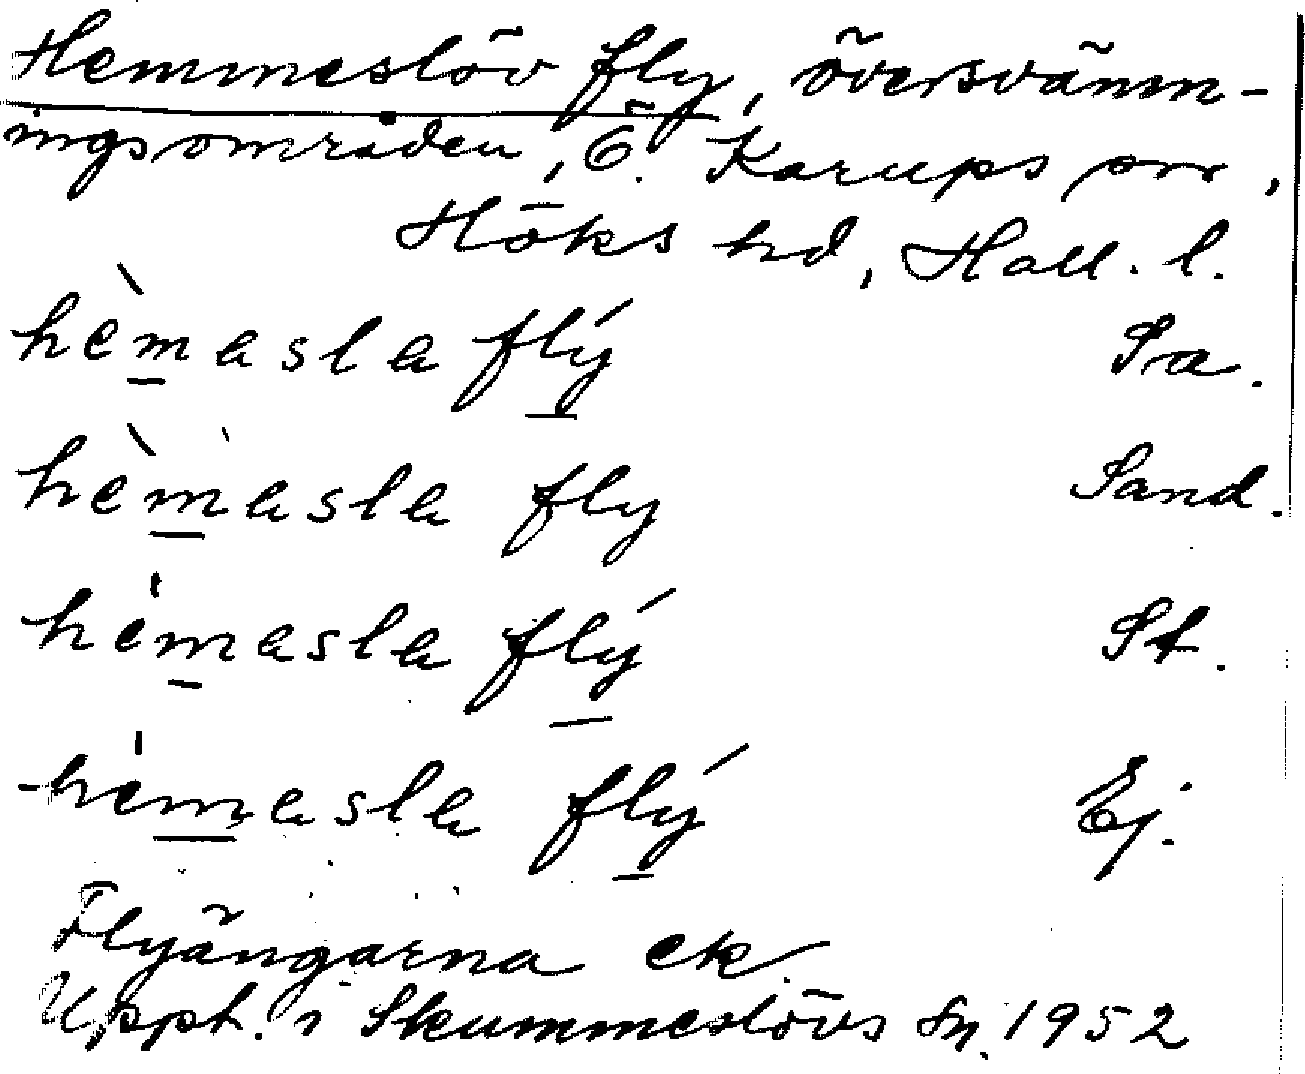 Hemmeslöv fly, översvämm-
ingsområden, Ö. Karups sn,
Höks hd, Hall. l.
hèmasla flý Sa.
hèmasla fly Sand.
hèmasla flý St.
hèmasla flý Ej.
Flyängarna ek.
Uppt. i Skummeslövs sn. 1952